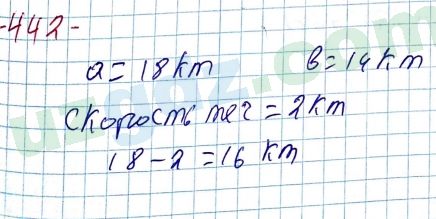 -442-
a = 18 km в = 14 km
скорость теч = 2 km
18 - 2 = 16 km